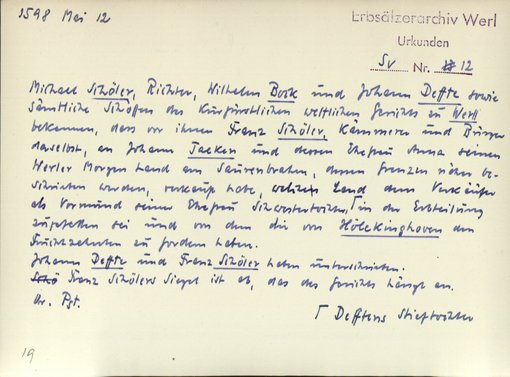 1598 Mai 12
Erbsälzerarchiv Werl
Urkunden
Sv Nr. 12
Michael Schöler, Richter, Wilhelm Bock und Johann Deffte sowie
sämtliche Schöffen des Kurfürstlichen weltlichen Gerichts zu Werl
bekennen, dass vor ihnen Franz Schöler, Kämmerer und Bürger
daselbst, an Johann Tacken und dessen Ehefrau Anna seinen
Werler Morgen Land am Saurenbraken, dessen Grenzen näher be-
schrieben werden, verkauft habe, welches Land dem Verkäufer
als Vormund seiner Ehefrau Schwestertochter, Γ in der Erbteilung
zugefallen sei und von dem die von Höldinghoven den
Fruchtzehnten zu fordern haben.
Johann Deffte und Franz Schöler haben unterschrieben.
Franz Schölers Siegel ist ab, das des Gerichts hängt an.
Or. Pgt.
Γ Defftens Stieftochter
19